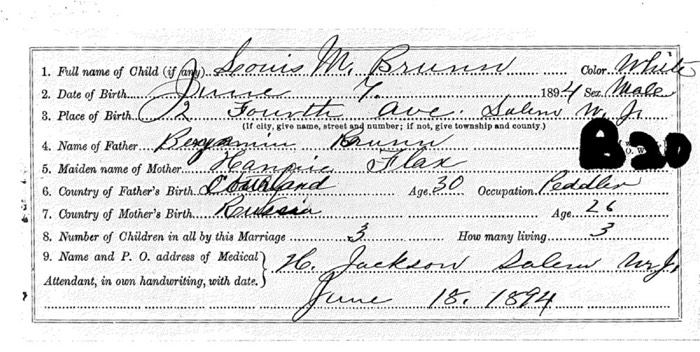 1. Full name of Child (if any) Louis M. Brunn Color White
2. Date of Birth June 7. 1894 Sex Male
3. Place of Birth 72 Fourth Ave. Salem N. J.
(If city, give name, street and number; if not, give township and county.)
4. Name of Father Benjamin Brunn B20
5. Maiden name of Mother Hannie Flax
6. Country of Father's Birth Age 30 Occupation Peddler
7. Country of Mother's Birth Russia Age 26
8. Number of Children in all by this Marriage 3 How many living 3
9. Name and P. O. address of Medical Attendant, in own handwriting, with date. H. Jackson Salem N. J.
June 18. 1894